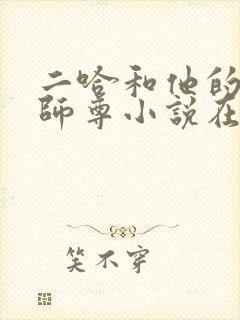 二哈和他的
師尊小說在
笑不穿